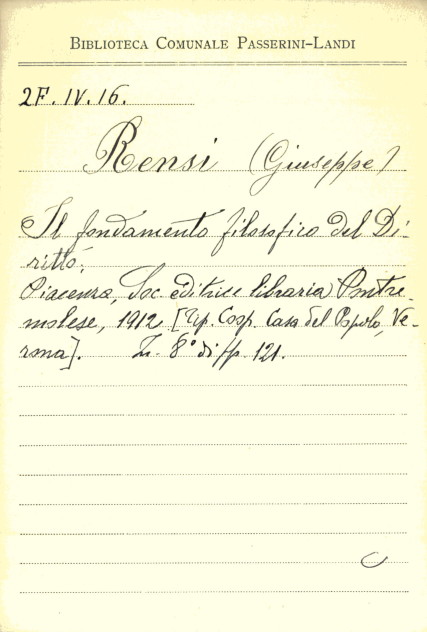 BIBLIOTECA COMUNALE PASSERINI-LANDI
2F. IV. 16.
Rensi (Giuseppe)
Il fondamento filosofico del Di-
ritto;
Piacenza, Soc. editrice libraria Pontre-
molese, 1912 [Tip. Coop. Casa del Popolo, Ve-
rona]. In 8° di pp. 121.